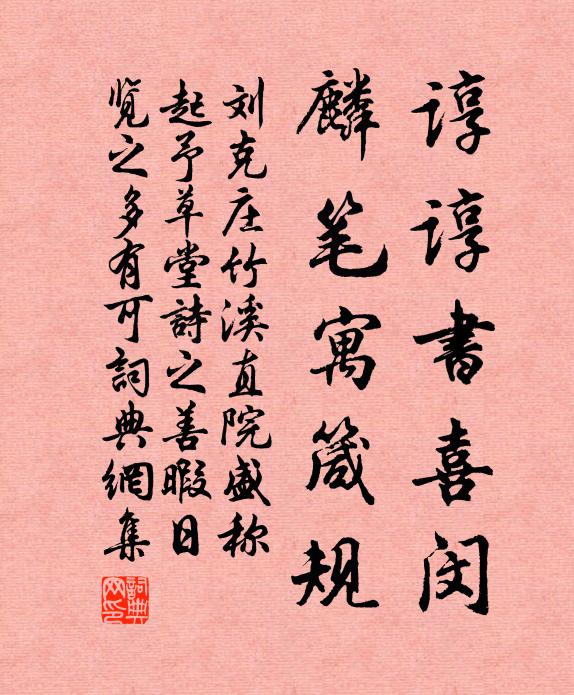 谆谆书喜闵
麟笔寓箴规
刘克庄竹溪直院盛称
起予草堂詩之善暇日
览之多有可詞典網集
詞典網印